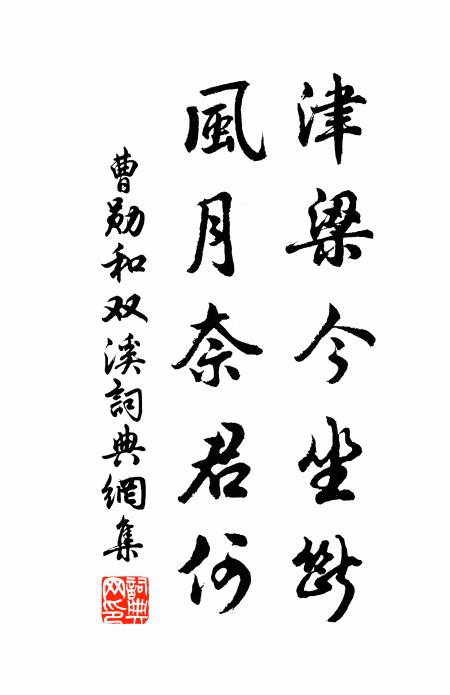 津梁今坐斷
風月奈君何
曹勛和双溪詞典網集
詞典网印